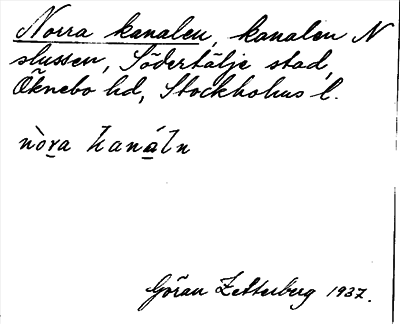 Norra kanalen, kanalen N
slussen, Södertälje stad,
Öknebo hd, Stockholms l.
nòra kanáln
Göran Zetterberg 1937.